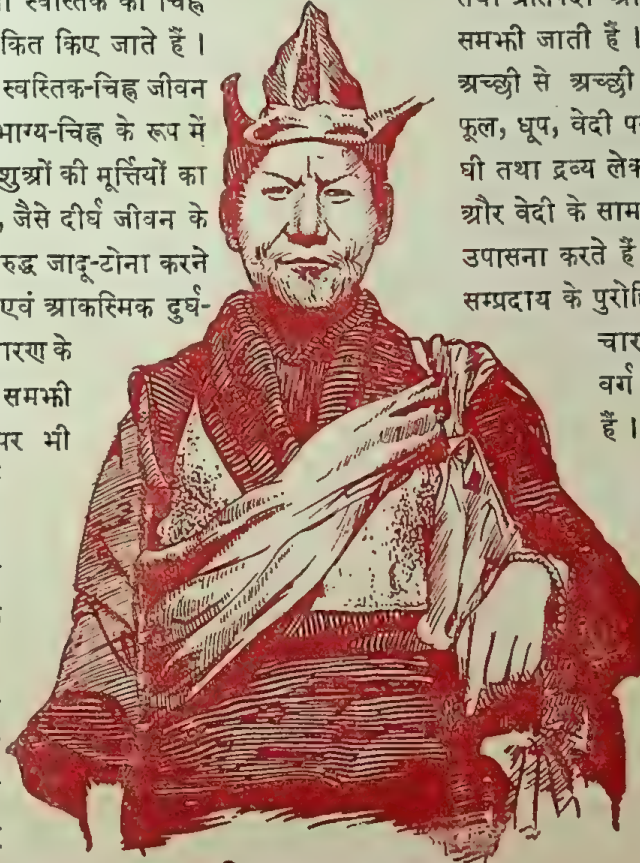 स्वस्तिक का चिह्न
कित किए जाते हैं ।
स्वस्तिक-चिह्न जीवन
भाग्य-चिह्न के रूप में
शुओं की मूर्त्तियों का
, जैसे दीर्घ जीवन के
रुद्ध जादू-टोना करने
एवं आकस्मिक दुर्घ-
ारण के
समझी
पर भी
समझी जाती हैं ।
अच्छी से अच्छी
फूल, धूप, वेदी प
घी तथा द्रव्य लेक
और वेदी के साम
उपासना करते हैं
सम्प्रदाय के पुरोहि
चार
वर्ग
हैं ।